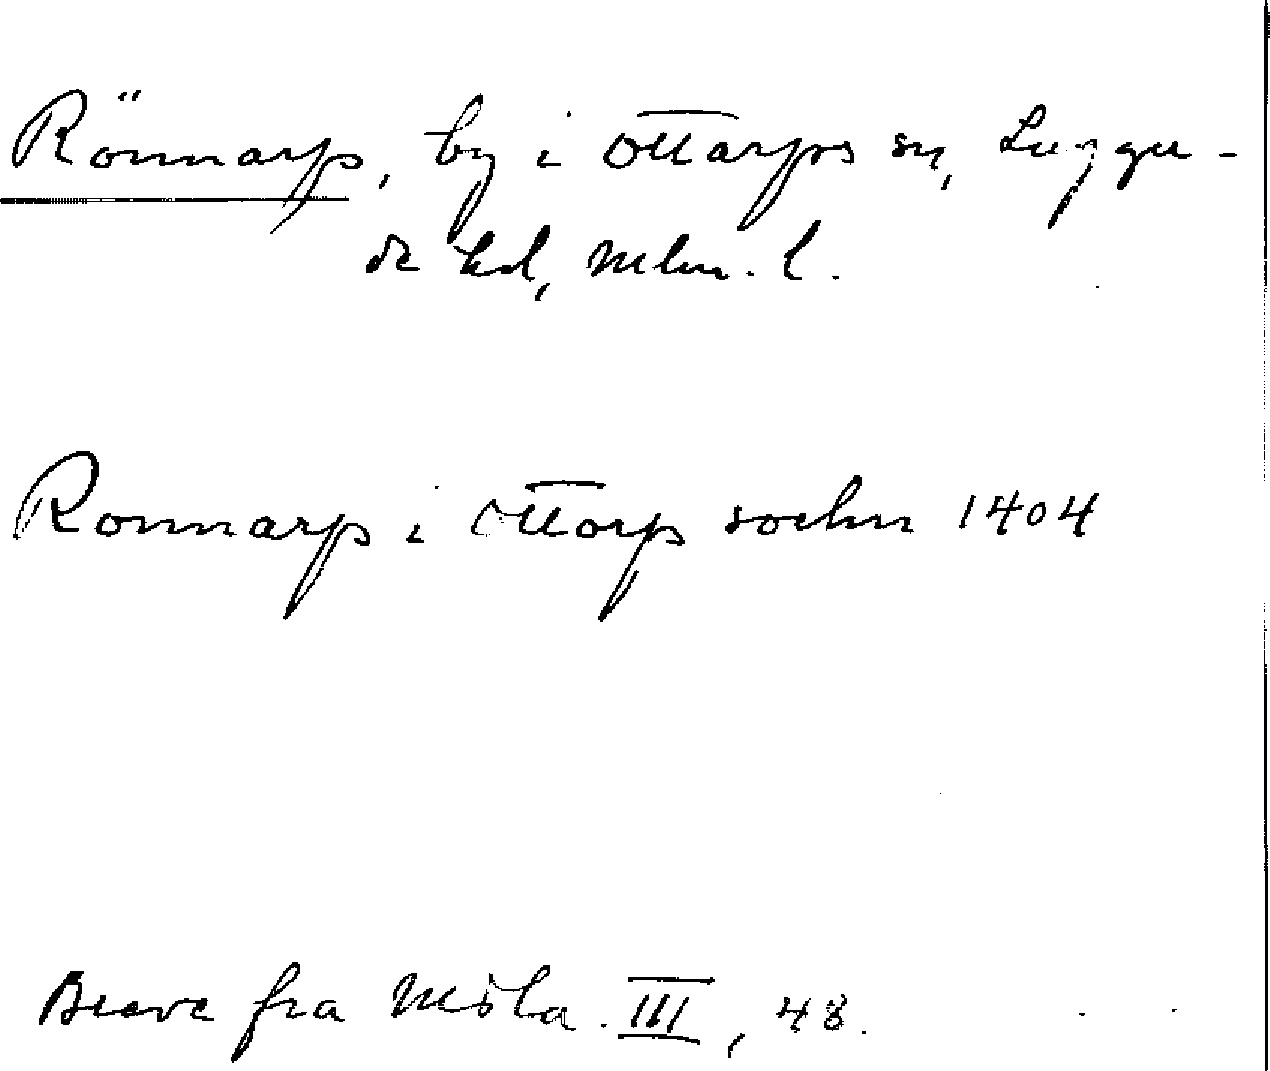 Rönnarp, by i Ottarps sn, Luggu-
de hd, Mlm. l.
Ronnarp i Ottorp sochn 1404
Breve fra Misla. III, 48.